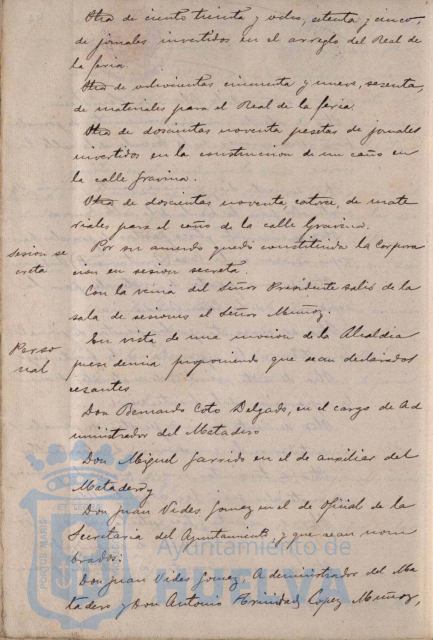 Otra de ciento treinta y ocho, setenta y cinco
de jornales invertidos en el arreglo del Real de
la feria.
Otra de ochocientas cincuenta y nueve, sesenta,
de materiales para el Real de la feria.
Otra de doscientas noventa pesetas de jornales
invertidos en la construccion de un caño en
la calle Gravina.
Otra de doscientas noventa, catorce, de mate
riales para el caño de la calle Gravina.
Sesion se
creta
Por su acuerdo quedó constituida la Corpora
cion en sesion secreta.
Con la venia del Señor Presidente salió de la
sala de sesiones el Señor Muñoz.
Perso
nal
En vista de una mocion de la Alcaldia
presidencia proponiendo que sean declarados
cesantes
Don Bernardo Coto Delgado, en el cargo de Ad
ministrador del Matadero
Don Miguel Garrido en el de auxiliar del
Matadero y
Don Juan Vides Gomez en el de Oficial de la
Secretaria del Ayuntamiento, y que sean nom
brados:
Don Juan Vides Gomez, Administrador del Ma
tadero y Don Antonio Trinidad Lopez Muñoz,
PORTUS MARIS
Ayuntamiento de
HUELVA